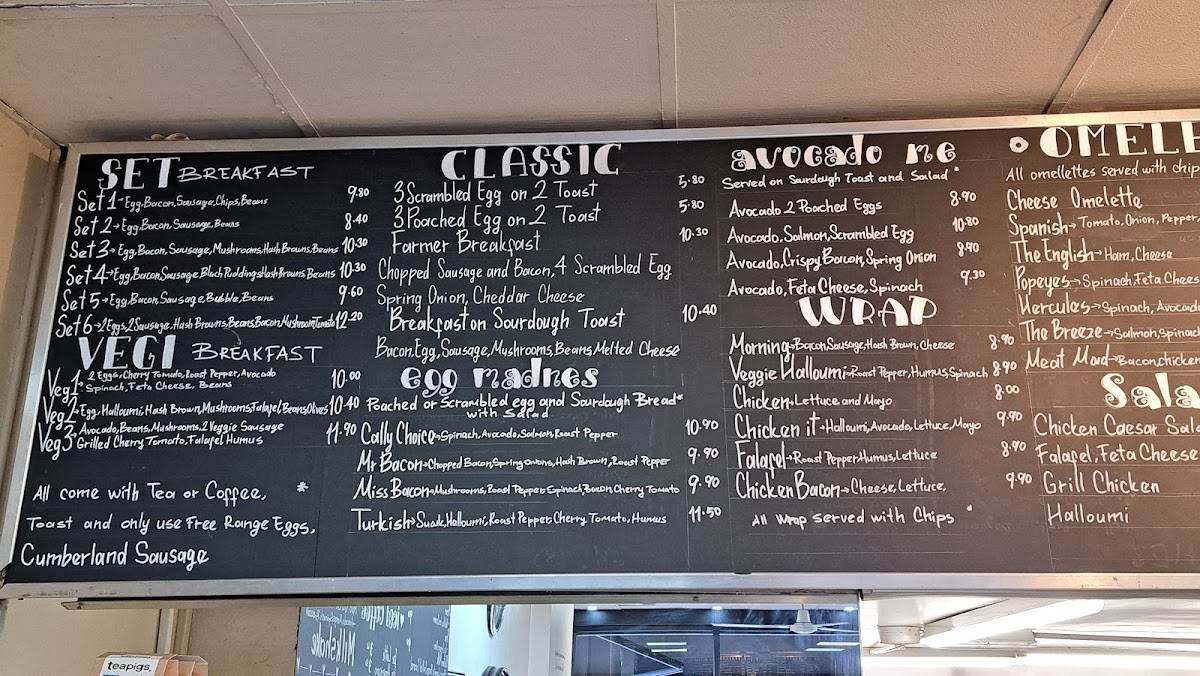 SET BREAKFAST
Set 1 - Egg, Bacon, Sausage, Chips, Beans 9.80
Set 2 → Egg, Bacon, Sausage, Beans 8.40
Set 3 → Egg, Bacon, Sausage, Mushrooms, Hash Browns, Beans 10.30
Set 4 → Egg, Bacon, Sausage, Black Pudding, Hash Browns, Beans 10.30
Set 5 → Egg, Bacon, Sausage, Bubble, Beans 9.60
Set 6 → 2 Eggs, 2 Sausage, Hash Browns, Beans, Bacon, Mushroom, Tomato 12.20
VEGI BREAKFAST
Veg 1 - 2 Eggs, Cherry Tomato, Roast Pepper, Avocado
Spinach, Feta Cheese, Beans 10.00
Veg 2 → Egg, Halloumi, Hash Brown, Mushrooms, Falafel, Beans, Olives 10.40
Veg 3 - Avocado, Beans, Mushrooms, 2 Veggie Sausage
Grilled Cherry Tomato, Falafel Humus 11.90
All come with Tea or Coffee, *
Toast and only use Free Range Eggs,
Cumberland Sausage
CLASSIC
3 Scrambled Egg on 2 Toast 5.80
3 Poached Egg on 2 Toast 5.80
Farmer Breakfast 10.30
Chopped Sausage and Bacon, 4 Scrambled Egg
Spring Onion, Cheddar Cheese
Breakfast on Sourdough Toast 10.40
Bacon, Egg, Sausage, Mushrooms, Beans, Melted Cheese
egg madnes
Poached or Scrambled egg and Sourdough Bread *
with Salad
Cally Choice → Spinach, Avocado, Salmon, Roast Pepper 10.90
Mr Bacon → Chopped Bacon, Spring Onions, Hash Brown, Roast Pepper 9.90
Miss Bacon → Mushrooms, Roast Pepper, Spinach, Bacon, Cherry Tomato 9.90
Turkish → Suuk, Halloumi, Roast Pepper, Cherry Tomato, Humus 11.50
avocado me
Served on Sourdough Toast and Salad *
Avocado 2 Poached Eggs 8.90
Avocado, Salmon, Scrambled Egg 10.80
Avocado, Crispy Bacon, Spring Onion 8.90
Avocado, Feta Cheese, Spinach 9.30
WRAP
Morning → Bacon, Sausage, Hash Brown, Cheese 8.90
Veggie Halloumi → Roast Pepper, Humus, Spinach 8.90
Chicken → Lettuce and Mayo 8.00
Chicken it → Halloumi, Avocado, Lettuce, Mayo 9.90
Falafel → Roast Pepper, Humus, Lettuce 8.90
Chicken Bacon → Cheese, Lettuce, 9.90
All Wrap served with Chips *
OMELE
All omellettes served with chip
Cheese Omelette
Spanish → Tomato, Onion, Pepper
The English → Ham, Cheese
Popeyes → Spinach, Feta Chees
Hercules → Spinach, Avocado
The Breeze → Salmon, Spinach
Meat Mad → Bacon, chicken
Sala
Chicken Caesar Sala
Falafel, Feta Cheese
Grill Chicken
Halloumi
teapigs.
Milkshake